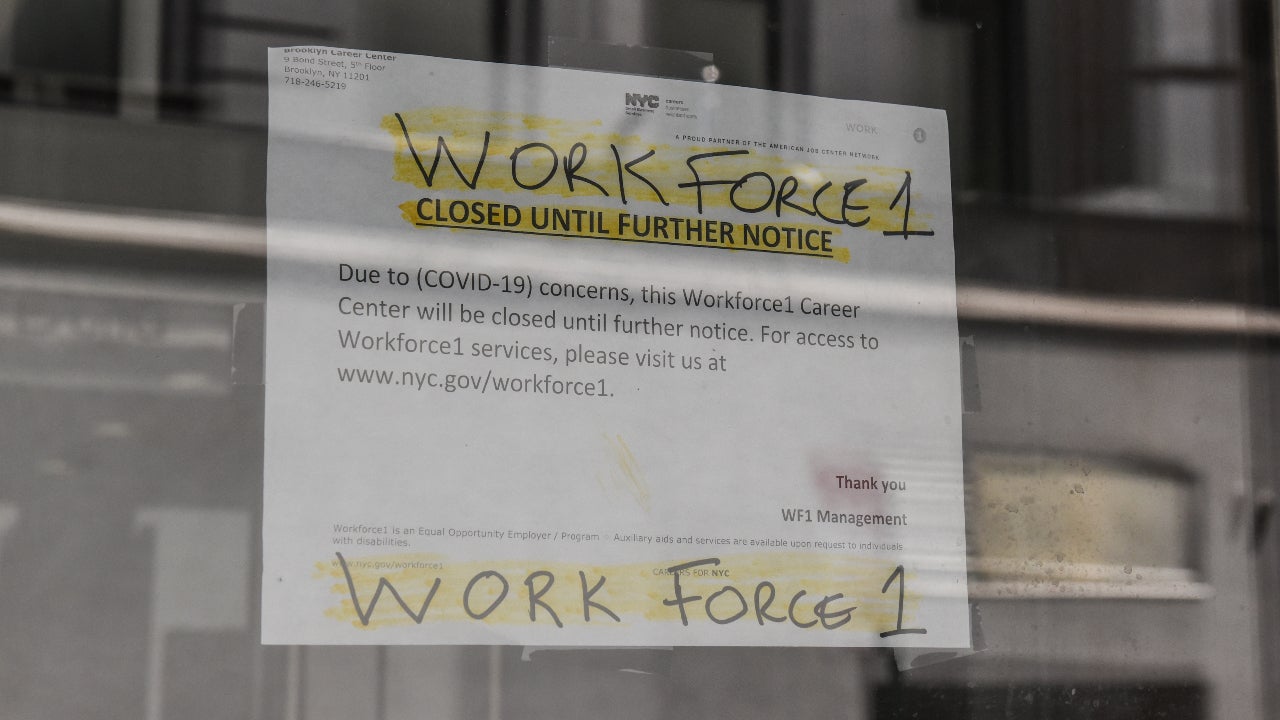 Brooklyn Career Center
9 Bond Street, 5th Floor
Brooklyn, NY 11201
718-246-5219
NYC
careers
WORK
1
A PROUD PARTNER OF THE AMERICAN JOB CENTER NETWORK
WORKFORCE 1
CLOSED UNTIL FURTHER NOTICE
Due to (COVID-19) concerns, this Workforce1 Career
Center will be closed until further notice. For access to
Workforce1 services, please visit us at
www.nyc.gov/workforce1.
Thank you
WF1 Management
Workforce1 is an Equal Opportunity Employer / Program ○ Auxiliary aids and services are available upon request to individuals
with disabilities.
www.nyc.gov/workforce1
CAREERS FOR NYC
WORK FORCE 1